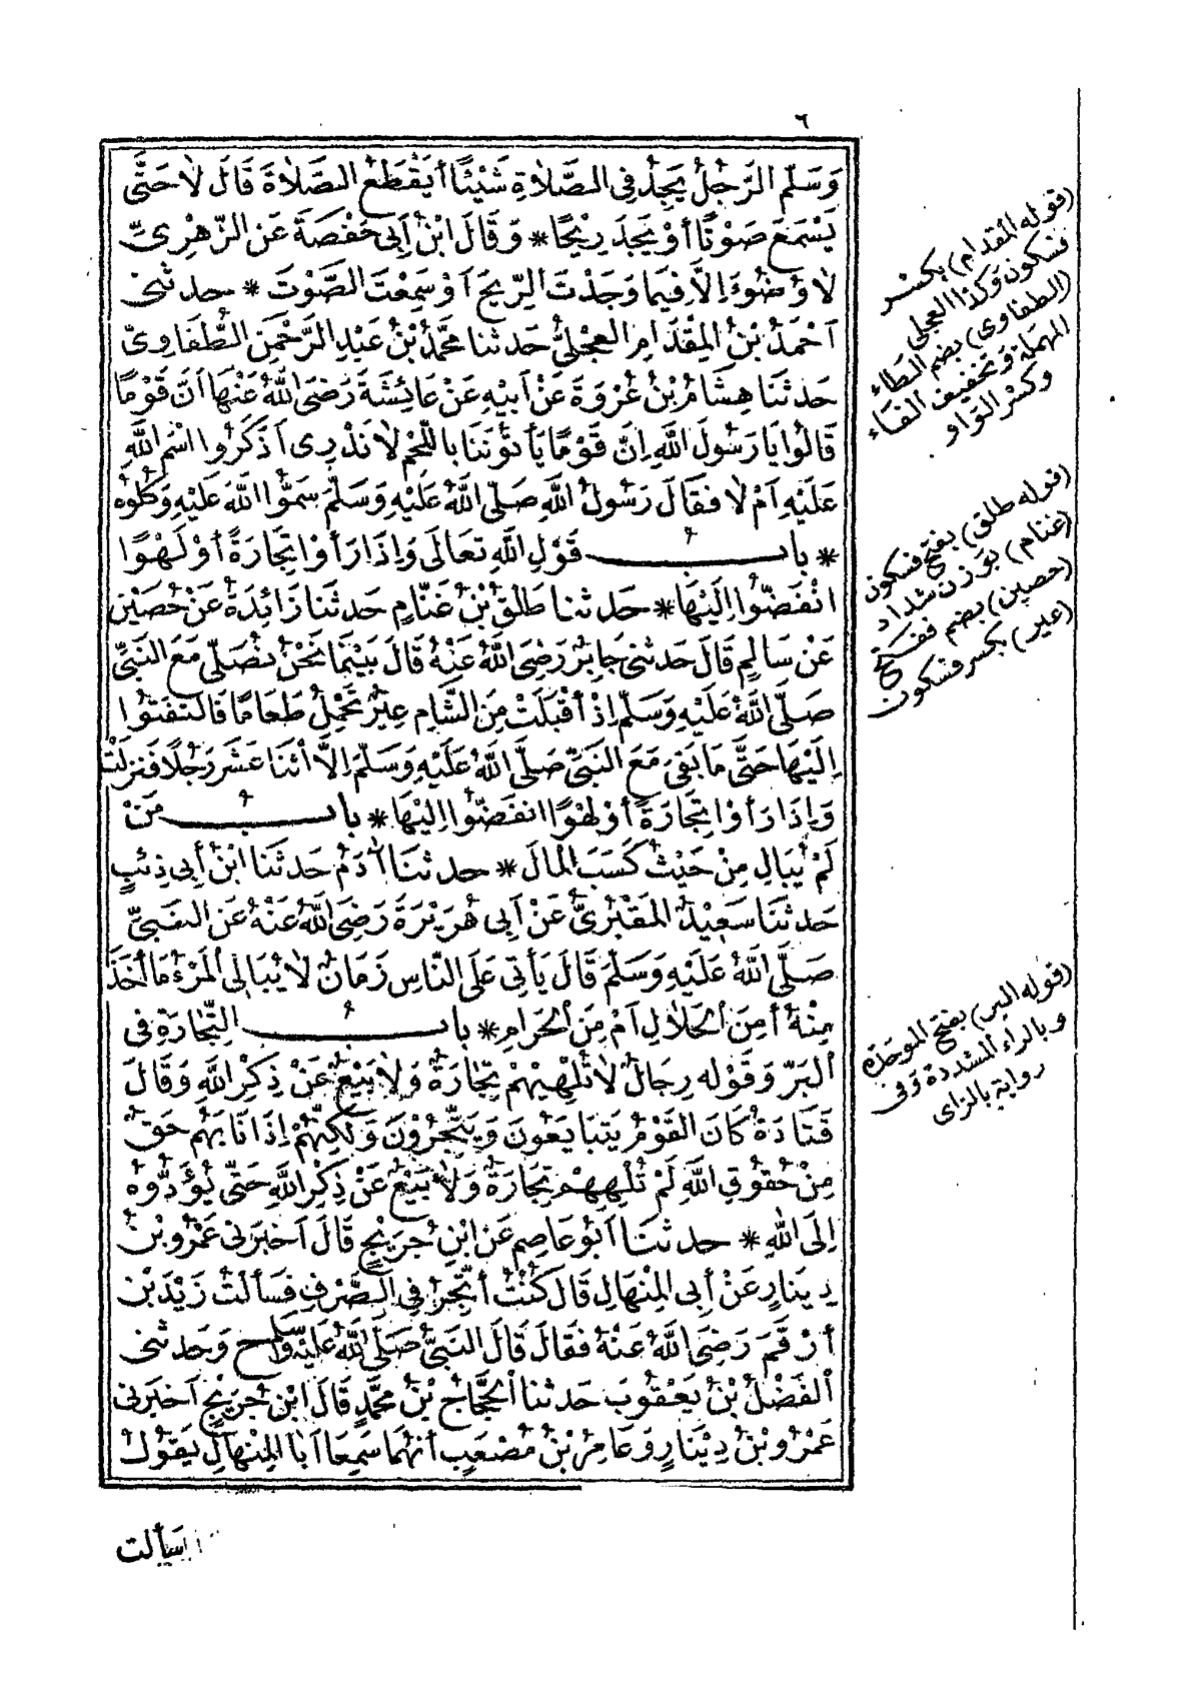 ٦
وَسَلَّمَ الرَّجُلُ يَجِدُ فِي الصَّلَاةِ شَيْئًا أَيَقْطَعُ الصَّلَاةَ قَالَ لَا حَتَّى
يَسْمَعَ صَوْتًا أَوْ يَجِدَ رِيحًا * وَقَالَ ابْنُ أَبِي حَفْصَةَ عَنِ الزُّهْرِيِّ
لَا وُضُوءَ إِلَّا فِيمَا وَجَدْتَ الرِّيحَ أَوْ سَمِعْتَ الصَّوْتَ * حدثني
أَحْمَدُ بْنُ الْمِقْدَامِ الْعِجْلِيُّ حَدثنا مُحَمَّدُ بْنُ عَبْدِ الرَّحْمَنِ الطُّفَاوِيُّ
حَدثَنَا هِشَامُ بْنُ عُرْوَةَ عَنْ أَبِيهِ عَنْ عَائِشَةَ رَضِيَ اللَّهُ عَنْهَا أَنَّ قَوْمًا
قَالُوا يَا رَسُولَ اللَّهِ إِنَّ قَوْمًا يَأْتُونَنَا بِاللَّحْمِ لَا نَدْرِي أَذَكَرُوا اسْمَ اللَّهِ
عَلَيْهِ أَمْ لَا فَقَالَ رَسُولُ اللَّهِ صَلَّى اللَّهُ عَلَيْهِ وَسَلَّمَ سَمُّوا اللَّهَ عَلَيْهِ وَكُلُوهُ
* بابُ قَوْلِ اللَّهِ تَعَالَى وَإِذَا رَأَوْا تِجَارَةً أَوْ لَهْوًا
انْفَضُّوا إِلَيْهَا * حَدثنا طَلْقُ بْنُ غَنَّامٍ حَدثنَا زَائِدَةُ عَنْ حُصَيْنٍ
عَنْ سَالِمٍ قَالَ حَدثني جَابِرٌ رَضِيَ اللَّهُ عَنْهُ قَالَ بَيْنَمَا نَحْنُ نُصَلِّي مَعَ النَّبِيِّ
صَلَّى اللَّهُ عَلَيْهِ وَسَلَّمَ إِذْ أَقْبَلَتْ مِنَ الشَّامِ عِيرٌ تَحْمِلُ طَعَامًا فَالْتَفَتُوا
إِلَيْهَا حَتَّى مَا بَقِيَ مَعَ النَّبِيِّ صَلَّى اللَّهُ عَلَيْهِ وَسَلَّمَ إِلَّا اثْنَا عَشَرَ رَجُلًا فَنَزَلَتْ
وَإِذَا رَأَوْا تِجَارَةً أَوْ لَهْوًا انفَضُّوا إِلَيْهَا * بابُ مَنْ
لَمْ يُبَالِ مِنْ حَيْثُ كَسَبَ الْمَالَ * حدثنَا آدَمُ حَدثنَا ابْنُ أَبِي ذِئْبٍ
حَدثنَا سَعِيدٌ الْمَقْبُرِيُّ عَنْ أَبِي هُرَيْرَةَ رَضِيَ اللَّهُ عَنْهُ عَنِ النَّبِيِّ
صَلَّى اللَّهُ عَلَيْهِ وَسَلَّمَ قَالَ يَأْتِي عَلَى النَّاسِ زَمَانٌ لَا يُبَالِي الْمَرْءُ مَا أَخَذَ
مِنْهُ أَمِنَ الْحَلَالِ أَمْ مِنَ الْحَرَامِ * بابُ التِّجَارَةِ فِي
الْبَرِّ وَقَوْلِه رِجَالٌ لَا تُلْهِيهِمْ تِجَارَةٌ وَلَا بَيْعٌ عَنْ ذِكْرِ اللَّهِ وَقَالَ
قَتَادَةُ كَانَ الْقَوْمُ يَتَبَايَعُونَ وَيَتَّجِرُونَ وَلَكِنَّهُمْ إِذَا نَابَهُمْ حَقٌّ
مِنْ حُقُوقِ اللَّهِ لَمْ تُلْهِهِمْ تِجَارَةٌ وَلَا بَيْعٌ عَنْ ذِكْرِ اللَّهِ حَتَّى يُؤَدُّوهُ
إِلَى اللَّهِ * حدثنَا أَبُو عَاصِمٍ عَنِ ابْنِ جُرَيْجٍ قَالَ أَخْبَرَنِي عَمْرُو بْنُ
دِينَارٍ عَنْ أَبِي الْمِنْهَالِ قَالَ كُنْتُ أَتَّجِرُ فِي الصَّرْفِ فَسَأَلْتُ زَيْدَ بْنَ
أَرْقَمَ رَضِيَ اللَّهُ عَنْهُ فَقَالَ قَالَ النَّبِيُّ صَلَّى اللَّهُ عَلَيْهِ وَسَلَّمَ ح وَحَدثني
الْفَضْلُ بْنُ يَعْقُوبَ حَدثنا الْحَجَّاجُ بْنُ مُحَمَّدٍ قَالَ ابْنُ جُرَيْجٍ أَخْبَرَنِي
عَمْرُو بْنُ دِينَارٍ وَعَامِرُ بْنُ مُصْعَبٍ أَنَّهُمَا سَمِعَا أَبَا الْمِنْهَالِ يَقُولُ
سَأَلت
(قوله المقدام) بكسر
فسكون وكذا العجلي
(الطفاوى) بضم الطاء
المهملة وتخفيف الفاء
وكسر الواو
(قوله طلق) بفتح فسكون
(غنام) بوزن شداد
(حصين) بضم ففتح
(عير) بكسر فسكون
(قوله البر) بفتح الموحدة
وبالراء المشددة وفى
رواية بالزاى